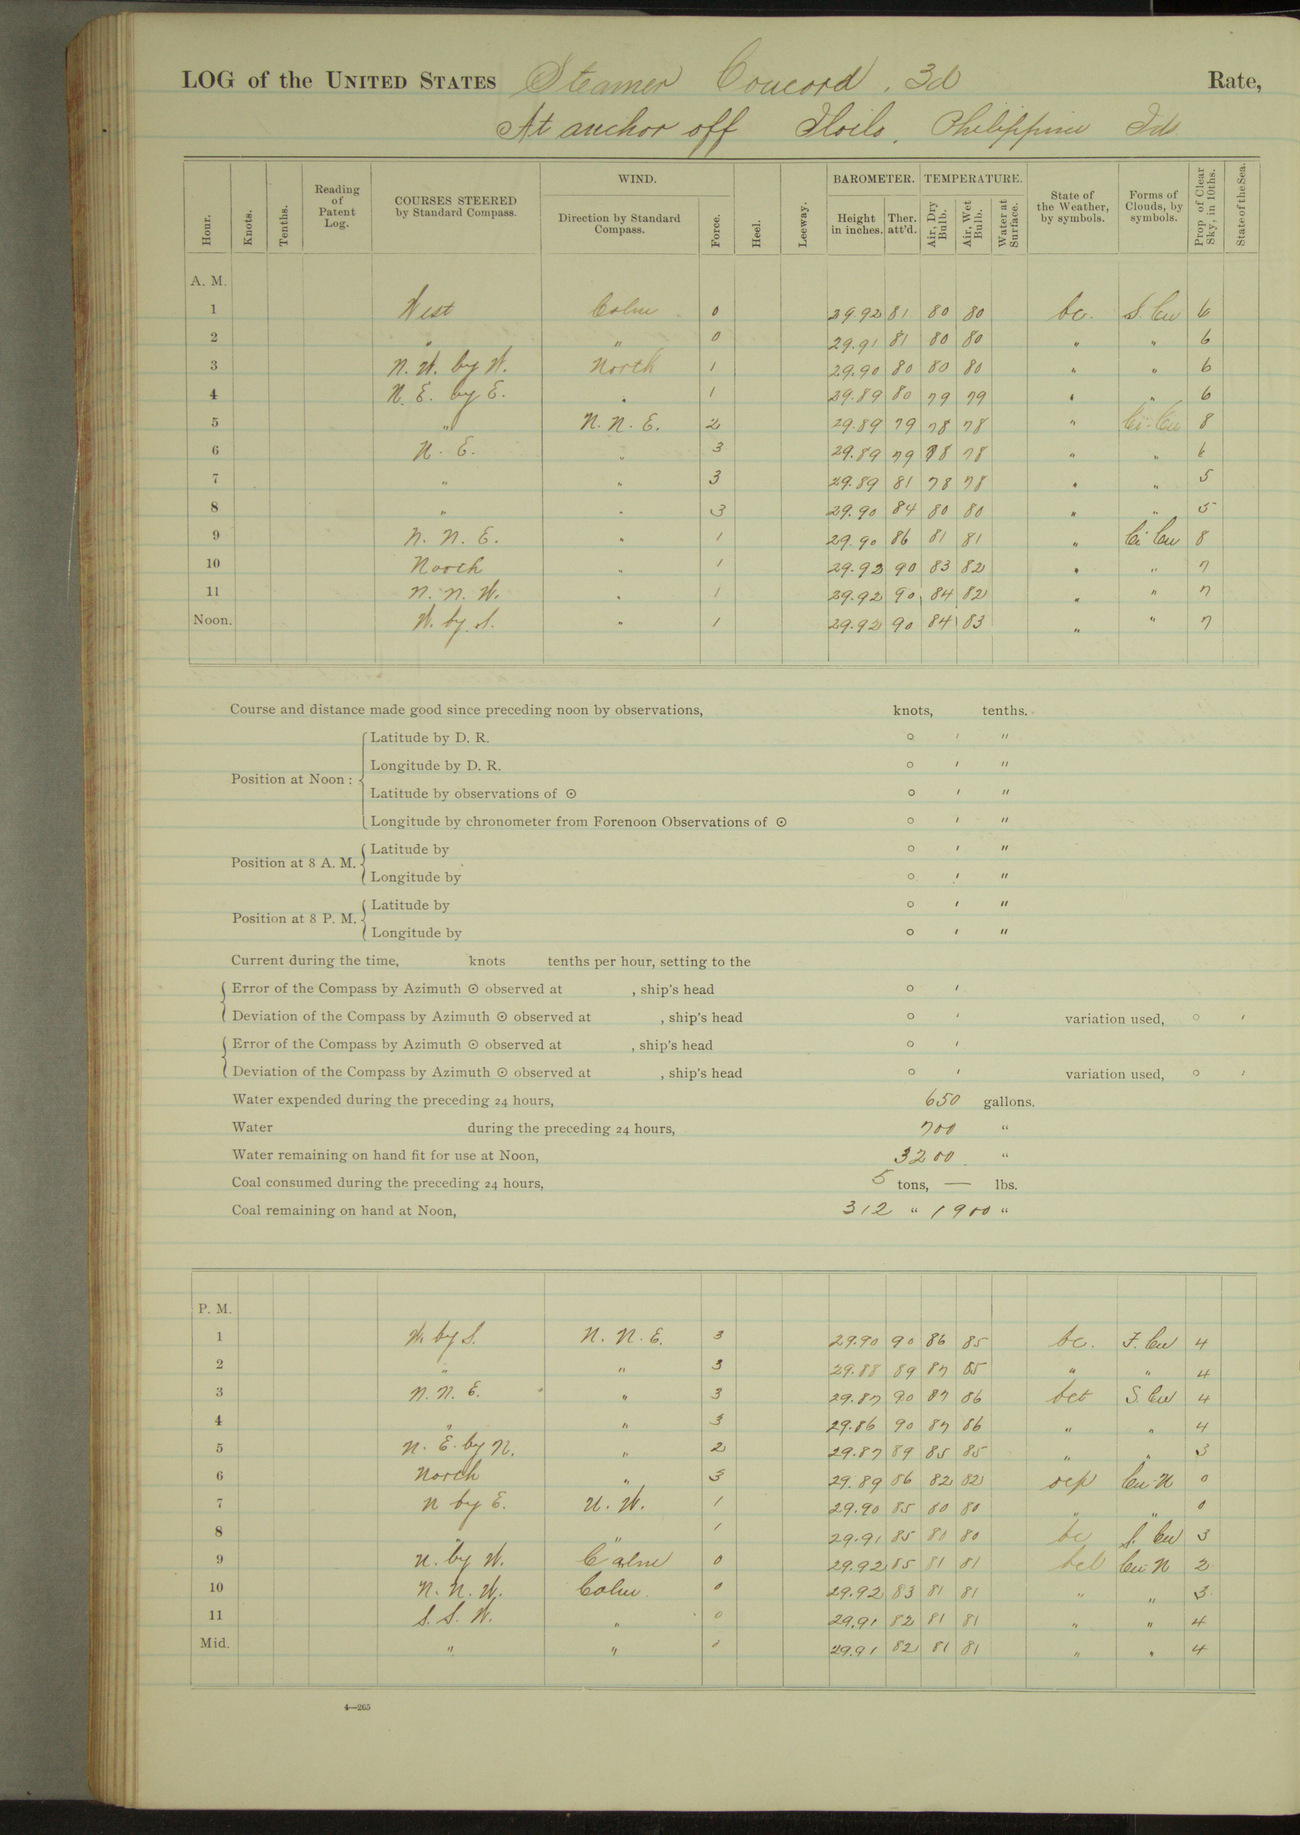 LOG of the UNITED STATES Steamer Concord, 3d Rate,
At anchor off Iloilo, Philippine Ids.
Hour. Knots. Tenths. Reading of Patent Log. COURSES STEERED by Standard Compass. WIND. Direction by Standard Compass. Force. Heel. Leeway. BAROMETER. Height in inches. Ther. att'd. TEMPERATURE. Air, Dry Bulb. Air, Wet Bulb. Water at Surface. State of the Weather, by symbols. Forms of Clouds, by symbols. Prop. of Clear Sky, in 10ths. State of the Sea.
A. M.
1 West Calm 0 29.92 81 80 80 bc. S. Cu 6
2 " " 0 29.91 81 80 80 " " 6
3 N. W. by W. North 1 29.90 80 80 80 " " 6
4 N. E. by E. " 1 29.89 80 79 79 " " 6
5 " N. N. E. 2 29.89 79 78 78 " Ci-Cu 8
6 N. E. " 3 29.89 79 78 78 " " 6
7 " " 3 29.89 81 78 78 " " 5
8 " " 3 29.90 84 80 80 " " 5
9 N. N. E. " 1 29.90 86 81 81 " Ci-Cu 8
10 North " 1 29.93 90 83 82 " " 7
11 N. N. W. " 1 29.92 90 84 82 " " 7
Noon. W. by S. " 1 29.92 90 84 83 " " 7
Course and distance made good since preceding noon by observations, knots, tenths.
Position at Noon :
Latitude by D. R. ° ′ ″
Longitude by D. R. ° ′ ″
Latitude by observations of ⊙ ° ′ ″
Longitude by chronometer from Forenoon Observations of ⊙ ° ′ ″
Position at 8 A. M.
Latitude by ° ′ ″
Longitude by ° ′ ″
Position at 8 P. M.
Latitude by ° ′ ″
Longitude by ° ′ ″
Current during the time, knots tenths per hour, setting to the
Error of the Compass by Azimuth ⊙ observed at , ship's head ° ′
Deviation of the Compass by Azimuth ⊙ observed at , ship's head ° ′ variation used, ° ′
Error of the Compass by Azimuth ⊙ observed at , ship's head ° ′
Deviation of the Compass by Azimuth ⊙ observed at , ship's head ° ′ variation used, ° ′
Water expended during the preceding 24 hours, 650 gallons.
Water during the preceding 24 hours, 700 "
Water remaining on hand fit for use at Noon, 3200 "
Coal consumed during the preceding 24 hours, 5 tons, — lbs.
Coal remaining on hand at Noon, 312 " 1900 "
P. M.
1 W. by S. N. N. E. 3 29.90 90 86 85 bc. F. Cu 4
2 " " 3 29.88 89 87 85 " " 4
3 N. N. E. " 3 29.87 90 87 86 bct S. Cu 4
4 " " 3 29.86 90 87 86 " " 4
5 N. E. by N. " 2 29.87 89 85 85 " " 3
6 North " 3 29.89 86 82 82 ocp Cu-N 0
7 N by E. N. W. 1 29.90 85 80 80 " " 0
8 " " 1 29.91 85 80 80 bc S. Cu 3
9 N. by W. Calm 0 29.92 85 81 81 bcl Cu-N 2
10 N. N. W. Calm 0 29.92 83 81 81 " " 3
11 S. S. W. " 0 29.91 82 81 81 " " 4
Mid. " " 0 29.91 82 81 81 " " 4
4—265